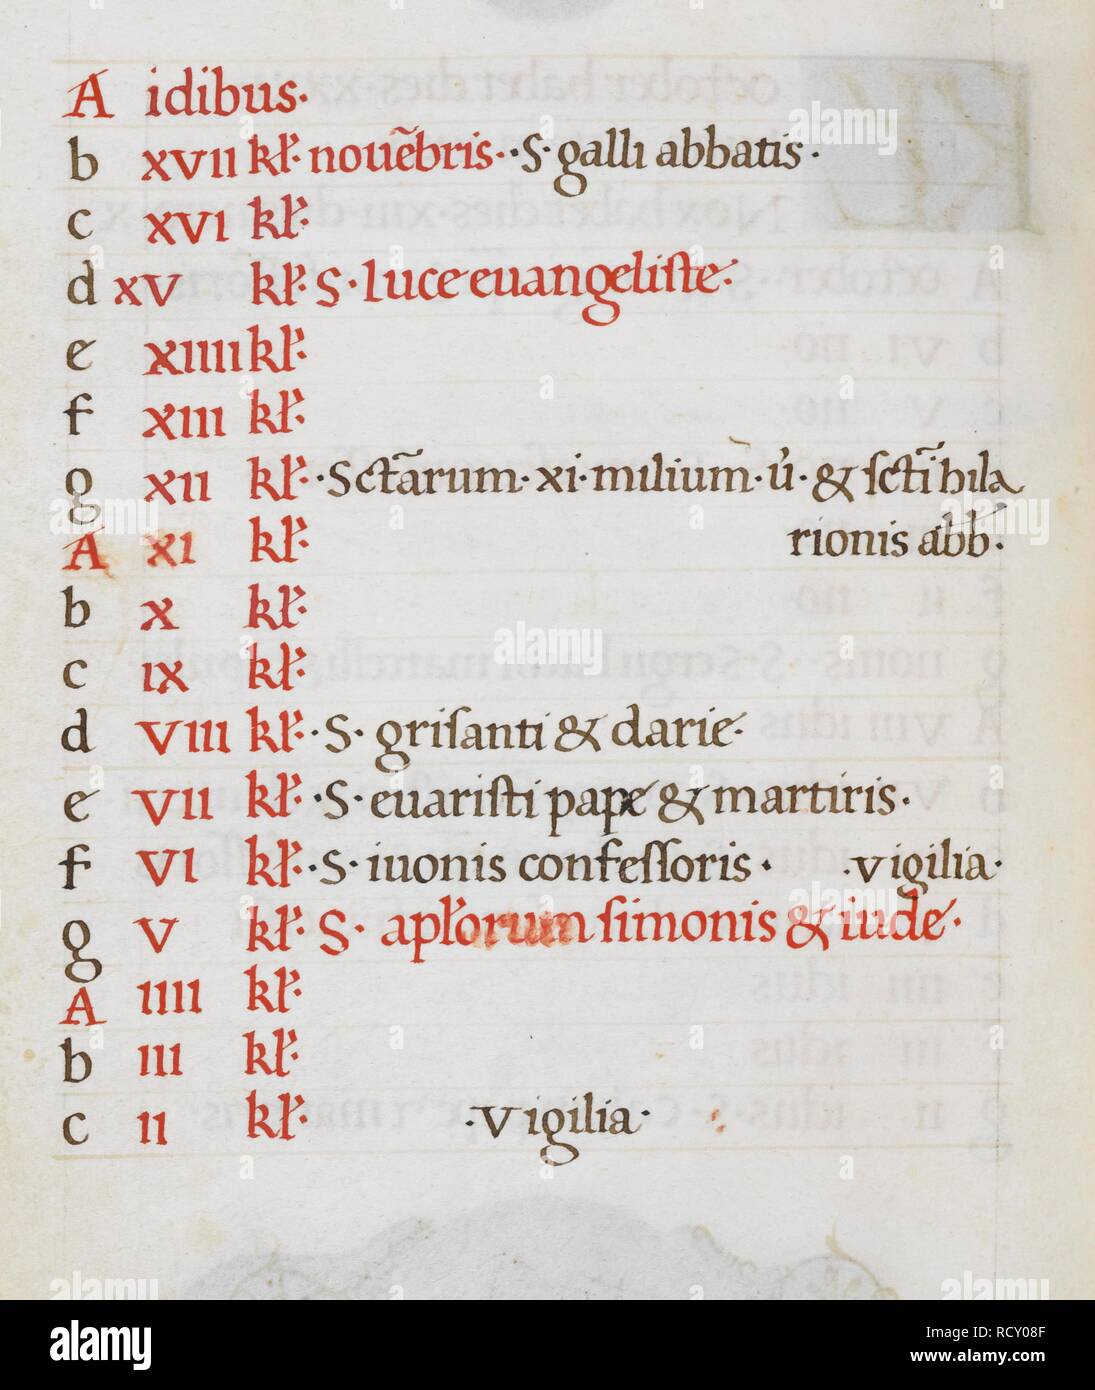 A idibus·
b xvii kl̃· nouēbris· ·S· galli abbatis·
c xvi kl̃·
d xv kl̃· S· luce euangeliste·
e xiiii kl̃·
f xiii kl̃·
g xii kl̃· ·Sctārum· xi· milium· ũ· & sctī hila
A xi kl̃· rionis abb̄·
b x kl̃·
c ix kl̃·
d viii kl̃· ·S· grisanti & darie·
e vii kl̃· ·S· euaristi pape & martiris·
f vi kl̃· ·S· iuonis confessoris· ·vigilia·
g v kl̃· S· apl̃orum simonis & iude·
A iiii kl̃·
b iii kl̃·
c ii kl̃· ·vigilia·
alamy
Image ID: RCY08F
www.alamy.com